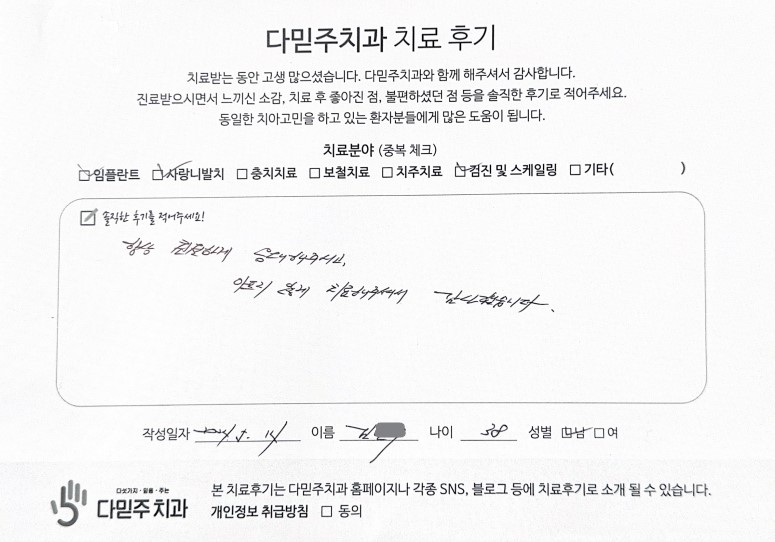 다믿주치과 치료 후기
치료받는 동안 고생 많으셨습니다. 다믿주치과와 함께 해주셔서 감사합니다.
진료받으시면서 느끼신 소감, 치료 후 좋아진 점, 불편하셨던 점 등을 솔직한 후기로 적어주세요.
동일한 치아고민을 하고 있는 환자분들에게 많은 도움이 됩니다.
치료분야 (중복 체크)
임플란트 사랑니발치 충치치료 보철치료 치주치료 검진 및 스케일링 기타( )
솔직한 후기를 적어주세요!
항상 친절하게 응대해주시고,
아프지 않게 치료해주셔서 감사합니다.
작성일자 이름 김 나이 38 성별 남 여
다섯가지·믿음·주는
다믿주치과
본 치료후기는 다믿주치과 홈페이지나 각종 SNS, 블로그 등에 치료후기로 소개 될 수 있습니다.
개인정보 취급방침 동의